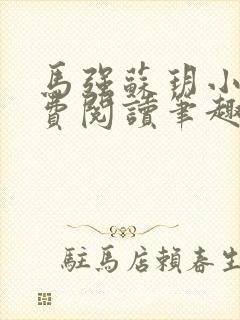 馬強蘇玥小
費閱讀筆趣
駐馬店賴春生